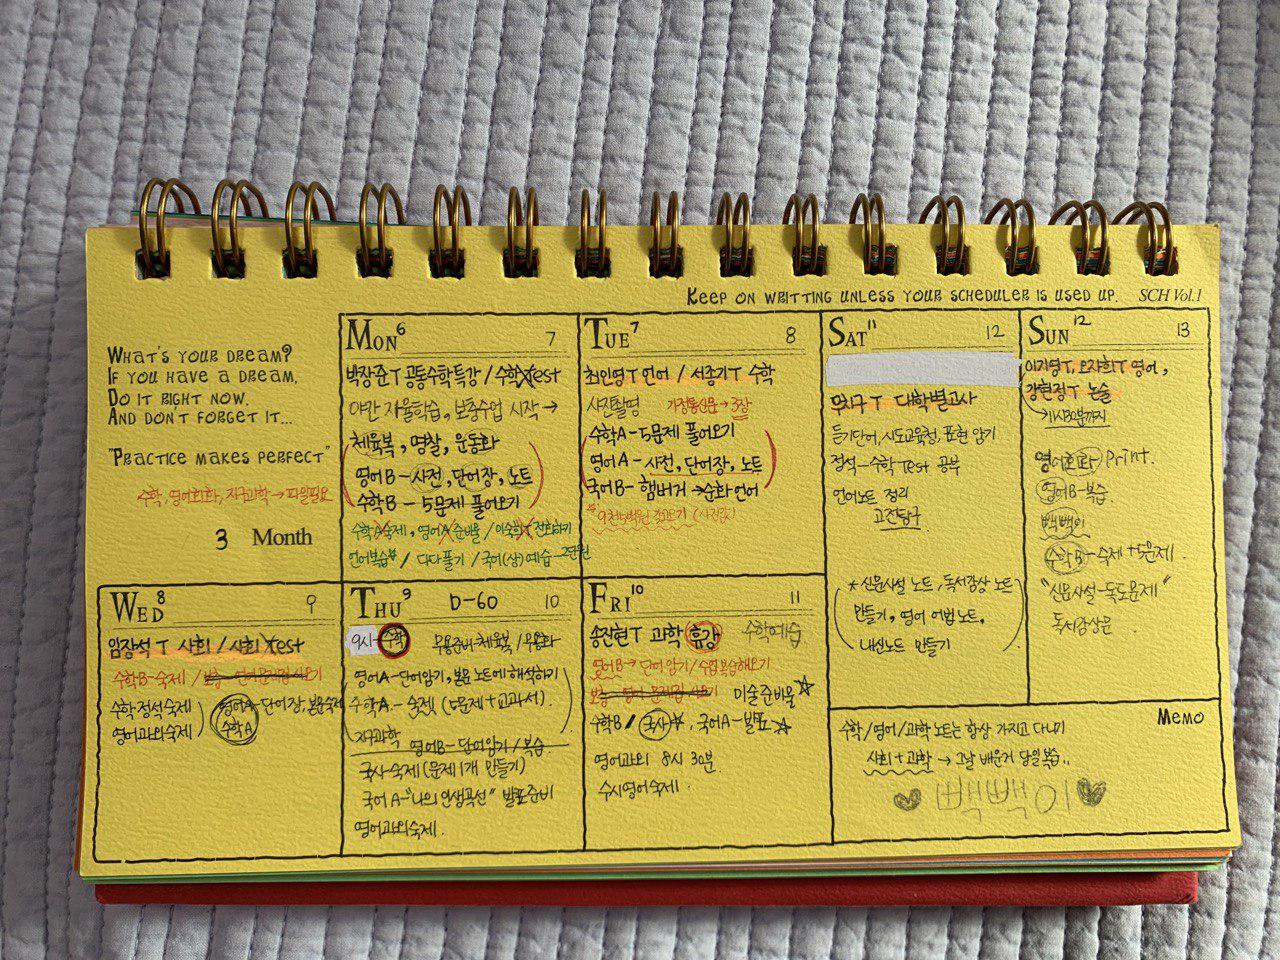 KEEP ON WRITTING UNLESS YOUR SCHEDULER IS USED UP. SCH Vol.1
WHAT'S YOUR DREAM?
IF YOU HAVE A DREAM,
DO IT RIGHT NOW.
AND DON'T FORGET IT...
"PRACTICE MAKES PERFECT"
수학, 영어회화, 지구과학 → 파일필요
3 Month
MON 6 7
박장준T 공통수학특강 / 수학Test
야간 자율학습, 보충수업 시작 →
체육복, 명찰, 운동화
영어B - 사전, 단어장, 노트
수학B - 5문제 풀어오기
수학A숙제, 영어A준비물 / 전화하기
언어복습 / 다다풀기 / 국어(상) 예습 - 2단원
TUE 7 8
최인영T 언어 / 서종기T 수학
사진촬영 가정통신문 → 3장
수학A - 5문제 풀어오기
영어A - 사전, 단어장, 노트
국어B - 햄버거 → 순화언어
SAT 11 12
T 대학별고사
듣기단어, 시도교육청, 표현 암기
정석 - 수학 Test 공부
언어노트 정리
고전탐구
*신문사설 노트, 독서감상 노트
만들기, 영어 어법노트,
내신노트 만들기
SUN 12 13
이지영T, 오자희T 영어,
강현정T 논술
영어회화 Print.
영어B - 복습
빽빽이
수학B - 숙제 + 5문제.
"신문사설 - 독도문제"
독서감상문
WED 8 9
임장석T 사회 / 사회Test
수학B - 숙제 /
수학정석숙제
영어과외숙제
영어A - 단어장, 본문숙제
수학A
THU 9 D-60 10
9시 - 수학 무용준비 - 체육복 / 무용화
영어A - 단어암기, 본문 노트에 해석하기
수학A - 숙제 (5문제 + 교과서)
지구과학
영어B - 단어암기 / 복습
국사 숙제 (문제 1개 만들기)
국어A - "나의 인생곡선" 발표준비
영어과외숙제.
FRI 10 11
송진현T 과학 휴강 수학예습
영어B → 단어암기 / 수업복습해오기
미술준비물☆
수학B / 국사 , 국어A - 발표☆
영어과외 8시 30분.
수시영어숙제.
MEMO
수학 / 영어 / 과학 노트는 항상 가지고 다니기
사회 + 과학 → 그날 배운거 당일 복습..
♥ 빽빽이 ♥